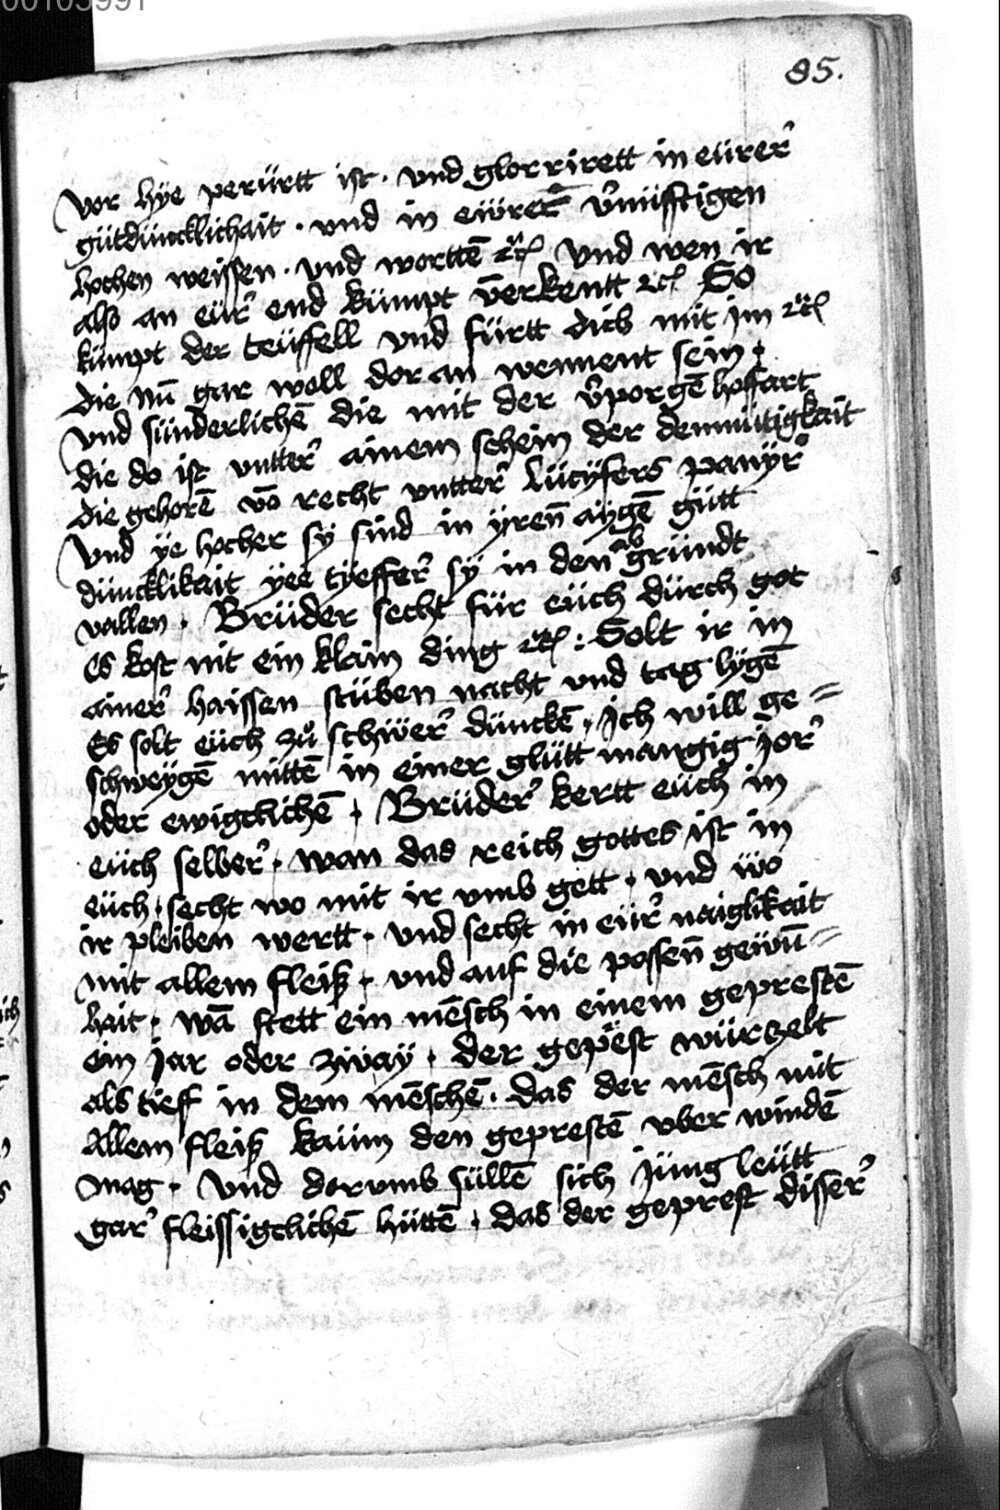 00105991
85.
vor hÿe perürtt ist · vnd glorrirett in eürer᷑
gütdüncklichait · vnd in ewrer᷑ v᷑nüfftigen
hochen weissen · vnd wortte᷑n ⁊c̃ vnd wen ir
also an eür᷑ end kümpt v̄erkentt ⁊c̃ So
kümpt der teüffell vnd fürtt dich mit im ⁊c̃
die nū gar woll dor an wennent sein ·
vnd sünderlichē die mit der v᷑porgē hoffart
die do ist vntter᷑ ainem schein der demütigkait
die gehorē vō recht vntter᷑ lücyfers panÿr᷑
vnd ÿe hocher sÿ sind in ÿren̄ aÿgē gütt
düncklikait ÿee tÿeffer᷑ sÿ in den abgründt
vallen · Brüder secht für eüch dürch got
es kost nit ein klain ding ⁊c̃ : Solt ir in
ainer᷑ haissen stüben nacht vnd tag lÿgē
Es solt eüch zů schwër᷑ dünckē · Ich will ge=
schweÿgē mittē in einer glütt mangig jor᷑
oder ewigclichē · Brüder᷑ kertt eüch in
eüch selber᷑ · wan das reich gottes ist in
eüch · secht wo mit ir vmb gett · vnd wo
ir pleiben wertt · vnd secht in eür᷑ naiglikait
mit allem fleiß · vnd auf die possen̄ gewū=
hait · wā stett ein mēsch in einem geprestē
ein jar oder zwaÿ · der gepest würzelt
als tieff in dem mēschē · das der mēsch mit
Allem fleiß kaüm den geprestē vber windē
mag · vnd dorvmb süllē sich jüng leütt
gar᷑ fleissigclichē hüttē · das der geprest disser᷑